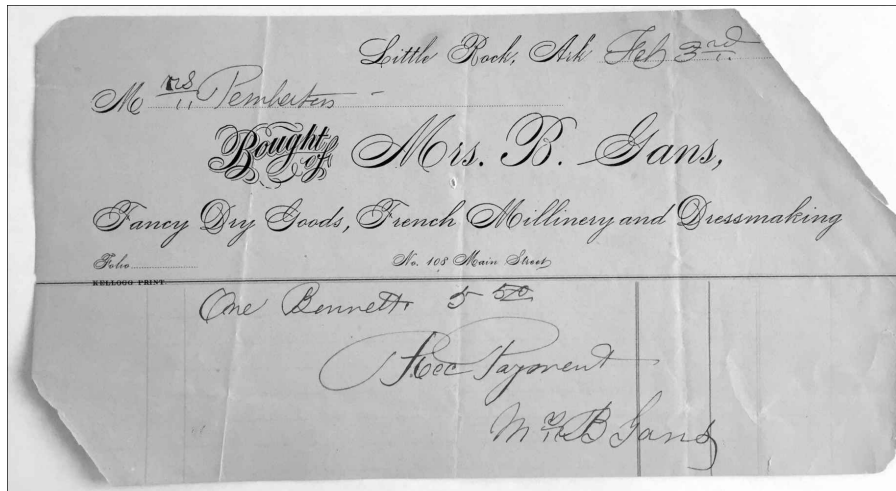 Little Rock, Ark Feb 3rd
Mrs Pemberton -
Bought of Mrs. B. Gans,
Fancy Dry Goods, French Millinery and Dressmaking
Folio No. 108 Main Street
KELLOGG PRINT.
One Bennett 5 50
Rec Payment
Mrs B Gans